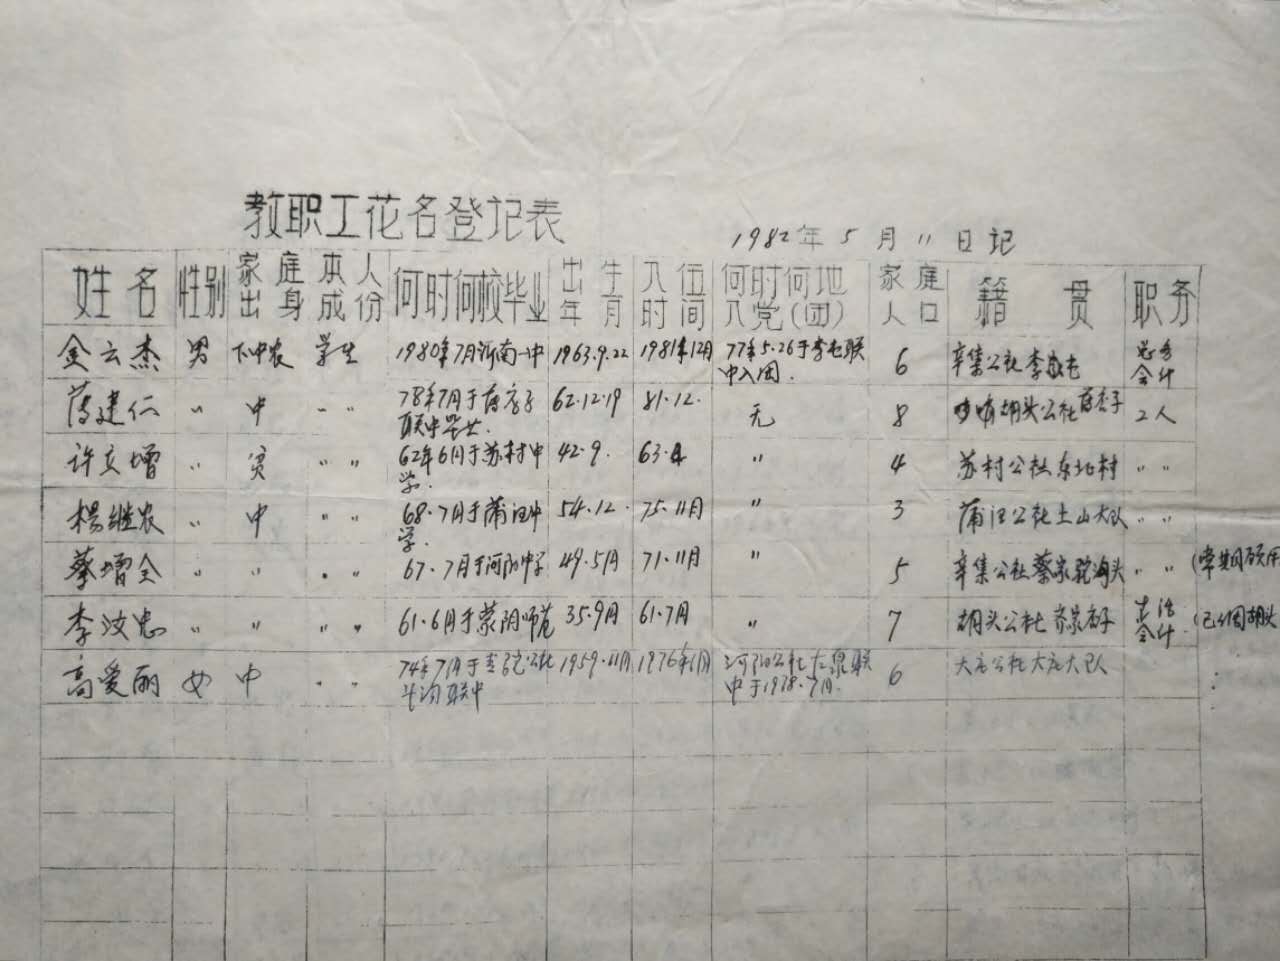 教职工花名登记表
1982年5月11日记
姓名 性别 家庭出身 本人成份 何时何校毕业 出生年月 入伍时间 何时何地入党(团) 家庭人口 籍贯 职务
金云杰 男 下中农 学生 1980年7月沂南一中 1963.9.22 1981年12月 77年5.26于李屯联中入团. 6 辛集公社李家屯 总务会计
薄建仁 〃 中 〃 〃 78年7月于 联中毕业. 62.12.19 81.12. 无 8 胡头公社 工人
许立增 〃 贫 〃 〃 62年6月于苏村中学. 42.9. 63.4 〃 4 苏村公社东北村 〃 〃
杨继农 〃 中 〃 〃 68.7月于蒲汪中学. 54.12. 75.11月 〃 3 蒲汪公社土山大队 〃 〃
蔡增全 〃 〃 〃 〃 67.7月于河阳中学 49.5月 71.11月 〃 5 辛集公社蔡家 〃 〃
李汝忠 〃 〃 〃 〃 61.6月于蒙阴师范 35.9月 61.7月 〃 7 胡头公社 生活会计 (已回胡头
高爱丽 女 中 〃 〃 74年7月于 公社 联中 1959.11月 1976年1月 河阳公社 联中于1978.7月. 6 大庄公社大庄大队